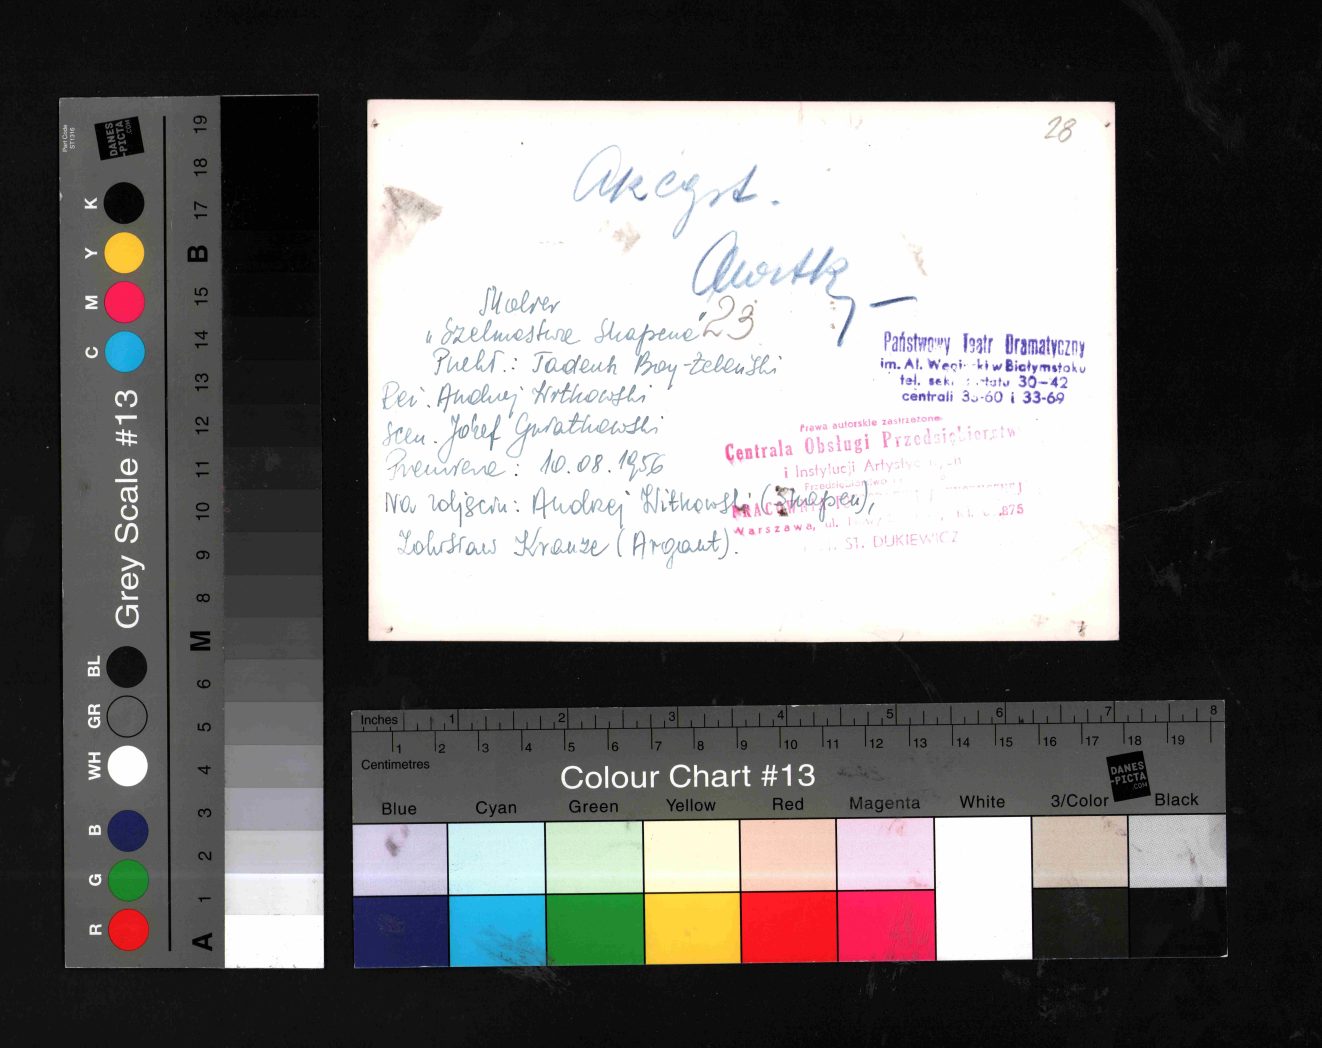 28
Akcept.
23
Molier
„Szelmostwa Skapena”
Przekł.: Tadeusz Boy-Żeleński
Reż. Andrzej Witkowski
Scen. Józef Gwiatkowski
Premiera: 10.08.1956
Na zdjęciu: Andrzej Witkowski (Skapen),
Zdzisław Krauze (Argant).
Państwowy Teatr Dramatyczny
im. Al. Węgierki w Białymstoku
tel. sekretariatu 30-42
centrali 33-60 i 33-69
Prawa autorskie zastrzeżone
Centrala Obsługi Przedsiębiorstw
i Instytucji Artystycznych
Przedsiębiorstwo
PRACOWNIA
Warszawa, ul.
ST. DUKIEWICZ
Part Code
ST1316
DANES
-PICTA
.COM
Grey Scale #13
K Y M C
BL GR WH
B G R
A 1 2 3 4 5 6 M 8 9 10 11 12 13 14 15 B 17 18 19
Inches 1 2 3 4 5 6 7 8
1 2 3 4 5 6 7 8 9 10 11 12 13 14 15 16 17 18 19
Centimetres
Colour Chart #13
DANES
-PICTA
.COM
Blue Cyan Green Yellow Red Magenta White 3/Color Black